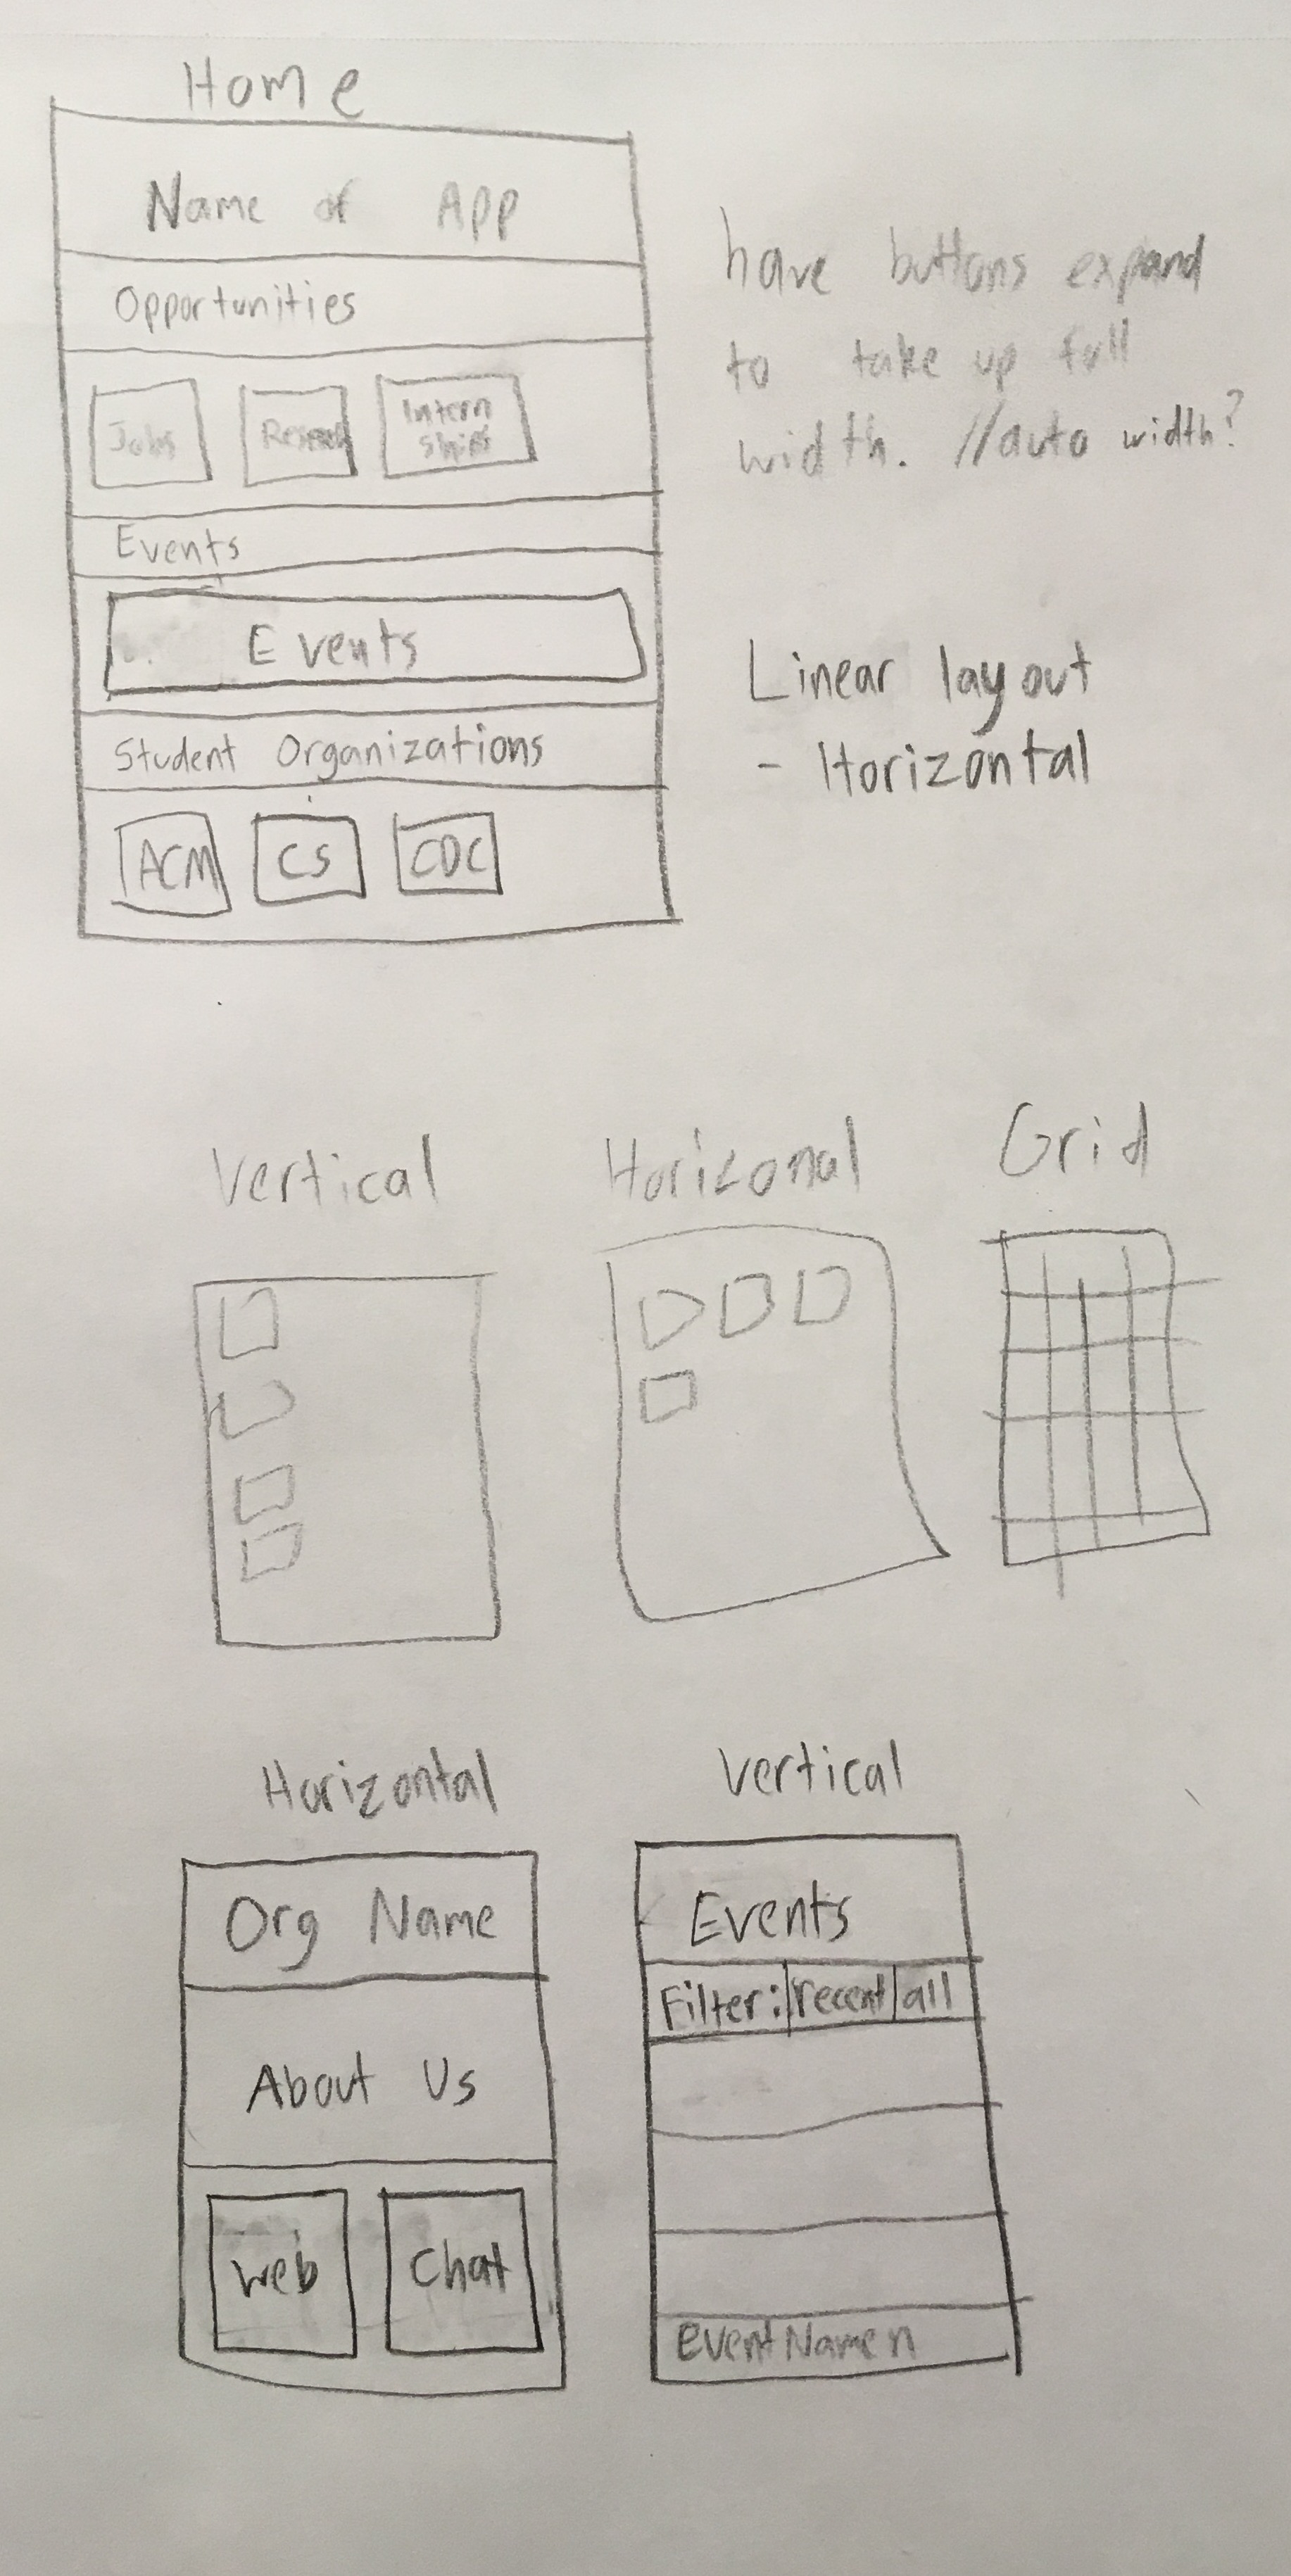 Home
Name of App
Opportunities
Jobs
Intern
ships
Events
Events
Student Organizations
ACM
CS
CDC
have buttons expand
to take up full
width. //auto width?
Linear layout
- Horizontal
Vertical
Horizonal
Grid
Horizontal
Org Name
About Us
Web
Chat
Vertical
Events
Filter: recent all
Event Name n